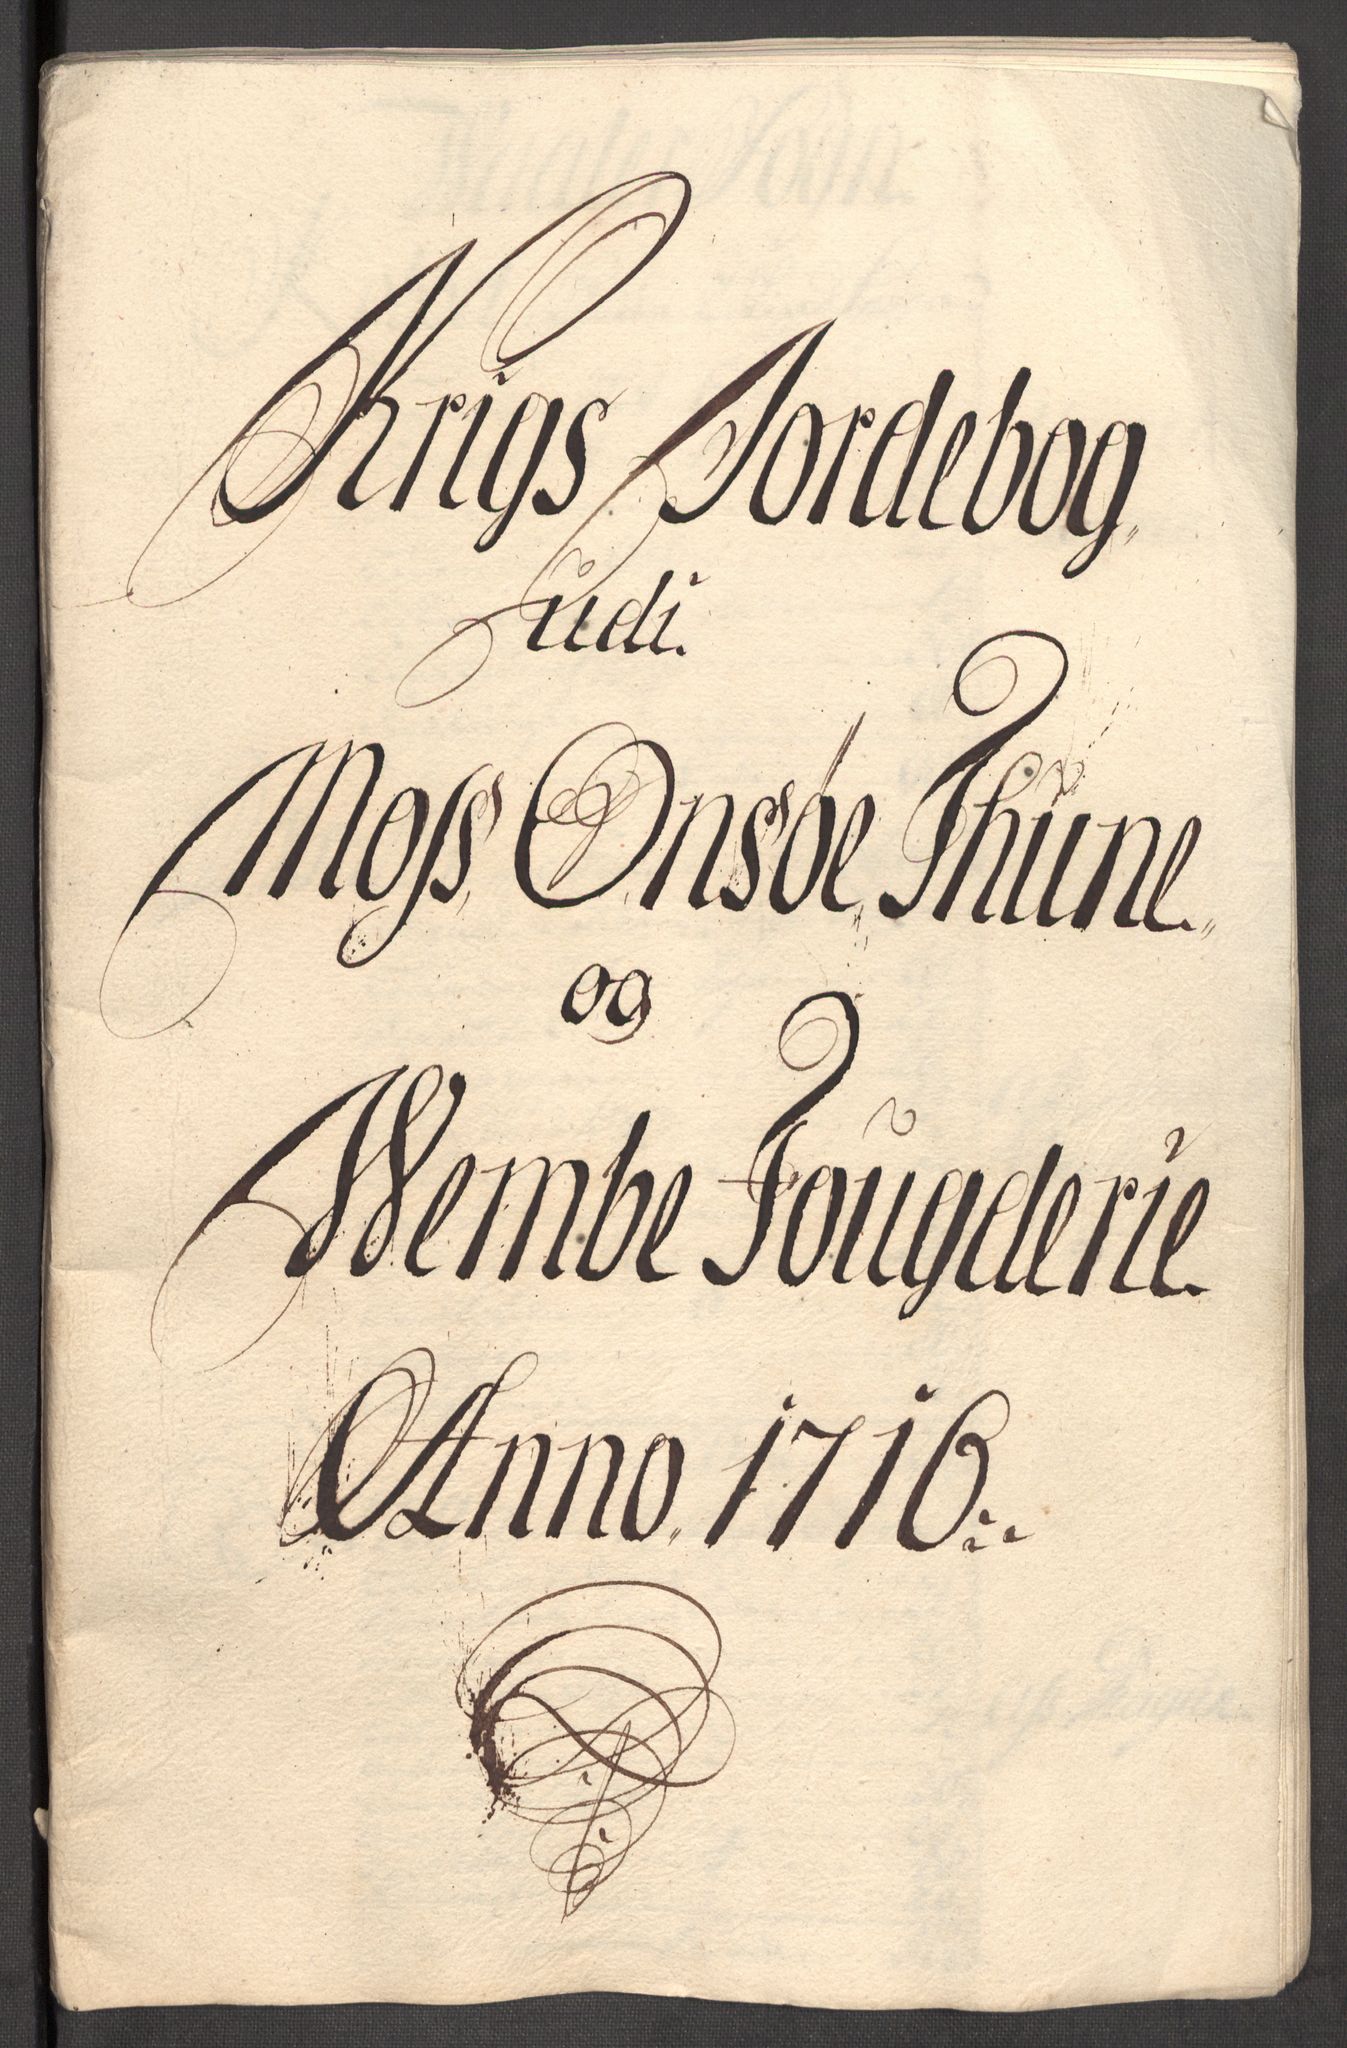 Krigs Jordebog,
udi.
Moss, Onsøe, Thune,
og
Wembe Fougderie.
Anno. 1716.